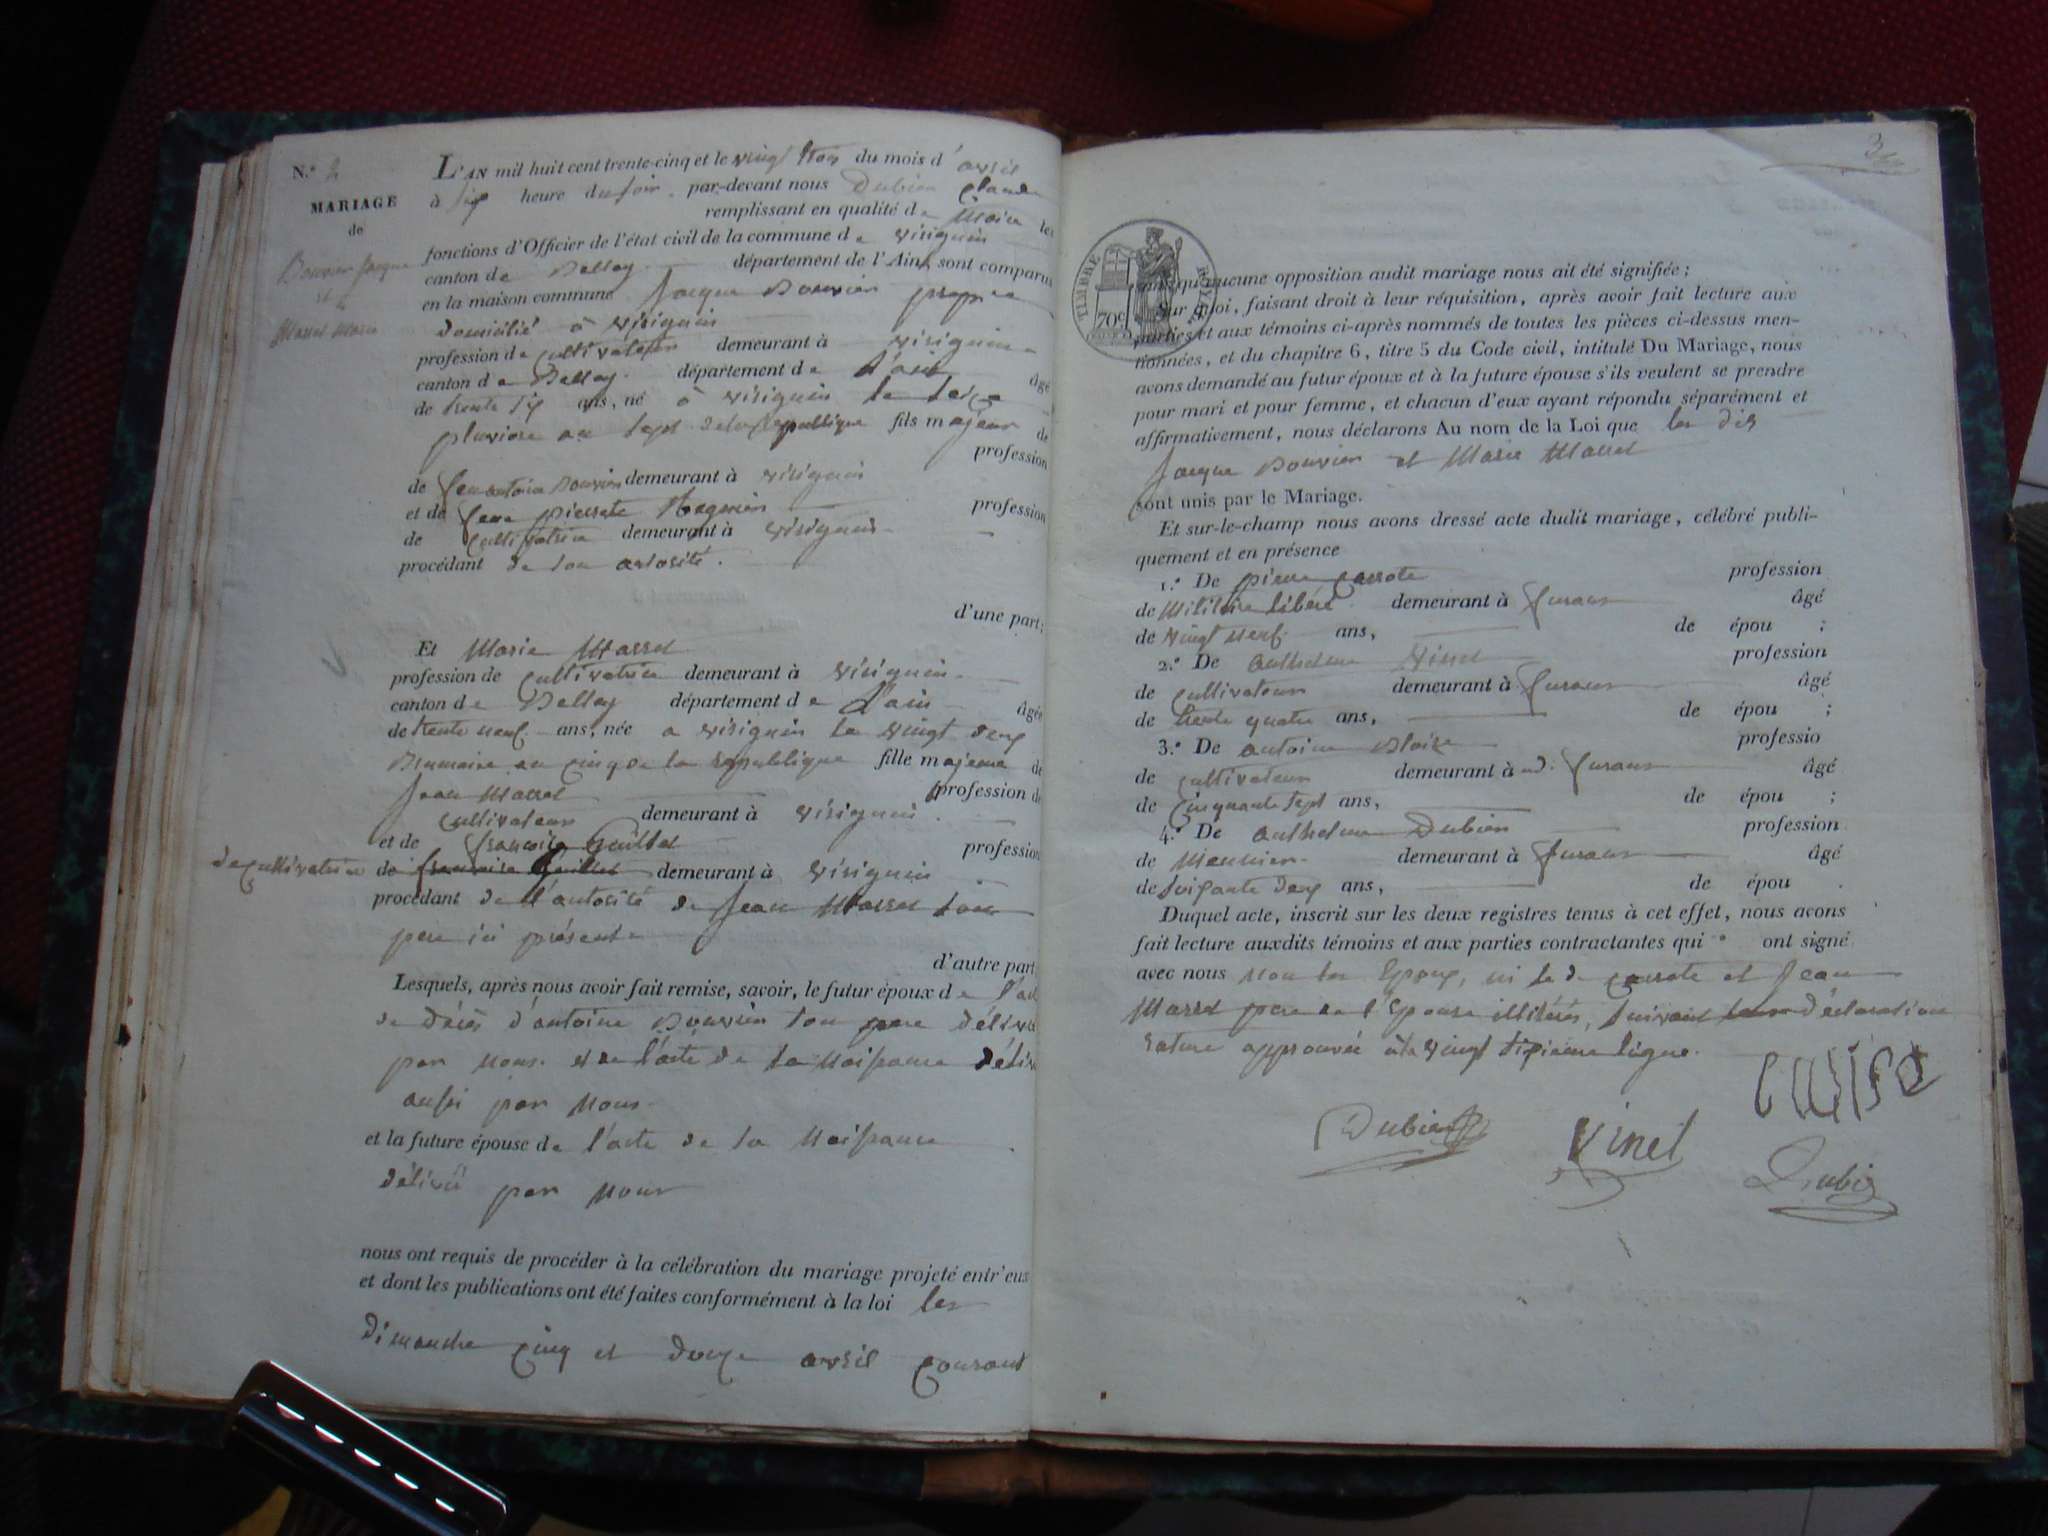 N.° 2
MARIAGE
de
Bouvier Jacque
et
Marrel Marie
L'AN mil huit cent trente-cinq et le vingt trois du mois d'avril
à six heure du soir par-devant nous Dubien Claude
remplissant en qualité de Maire les
fonctions d'Officier de l'état civil de la commune de virignin
canton de Belley département de l'Ain, sont comparus
en la maison commune Jacque Bouvier
domicilié à virignin
profession de cultivateur demeurant à virignin
canton de Belley département de l'ain âgé
de trente six ans, né à virignin le
pluviose an sept de la republique fils majeur de
profession
de feu antoine Bouvier demeurant à virignin
et de feue pierrete profession
de cultivatrice demeurant à virignin
procédant de son autorité.
d'une part;
Et Marie Marrel
profession de cultivatrice demeurant à virignin
canton de Belley département de l'ain âgée
de trente neuf ans, née a virignin le vingt deux
Brumaire an cinq de la republique fille majeure de
Jean Marrel profession de
cultivateur demeurant à virignin
et de francoise Guillet profession
de cultivatrice de francoise Guillet demeurant à virignin
procédant de l'autorité de Jean Marrel son
pere ici présent
d'autre part.
Lesquels, après nous avoir fait remise, savoir, le futur époux de l'acte
de décès d'antoine Bouvier son pere délivré
par nous et de l'acte de sa naissance délivré
aussi par nous
et la future épouse de l'acte de sa naissance
délivré par nous
nous ont requis de procéder à la célébration du mariage projeté entr'eux
et dont les publications ont été faites conformément à la loi les
dimanche cinq et douze avril courant
3
TIMBRE ROYAL
70c
qu'aucune opposition audit mariage nous ait été signifiée;
Sur quoi, faisant droit à leur réquisition, après avoir fait lecture aux
parties et aux témoins ci-après nommés de toutes les pièces ci-dessus men-
tionnées, et du chapitre 6, titre 5 du Code civil, intitulé Du Mariage, nous
avons demandé au futur époux et à la future épouse s'ils veulent se prendre
pour mari et pour femme, et chacun d'eux ayant répondu séparément et
affirmativement, nous déclarons Au nom de la Loi que les dits
Jacque Bouvier et Marie Marrel
sont unis par le Mariage.
Et sur-le-champ nous avons dressé acte dudit mariage, célébré publi-
quement et en présence
1.° De pierre carrote profession
de Militaire libéré demeurant à furans âgé
de vingt neuf ans, de épou ;
2.° De anthelme Vinel profession
de cultivateur demeurant à furans âgé
de trente quatre ans, de épou ;
3.° De antoine Blaise professio
de cultivateur demeurant à ud. furans âgé
de cinquante sept ans, de épou ;
4.° De anthelme Dubien profession
de Meunier demeurant à furans âgé
de soixante deux ans, de épou .
Duquel acte, inscrit sur les deux registres tenus à cet effet, nous avons
fait lecture auxdits témoins et aux parties contractantes qui ont signé
avec nous non les Epoux, ni le d carrote et Jean
Marrel pere de l'Epouse illiterés, suivant leur déclaration
rature approuvée à la vingt sixieme ligne.
Dubien
Vinel
Dubien